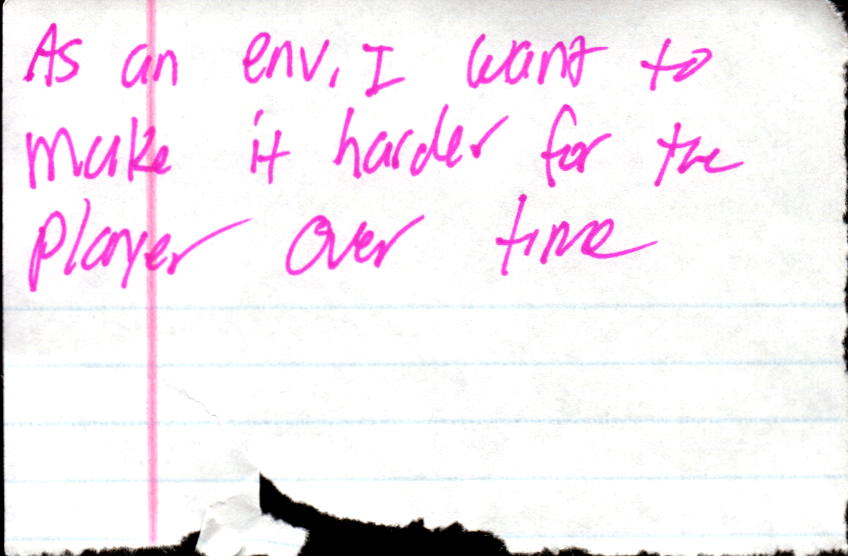 As an env, I want to
make it harder for the
player over time